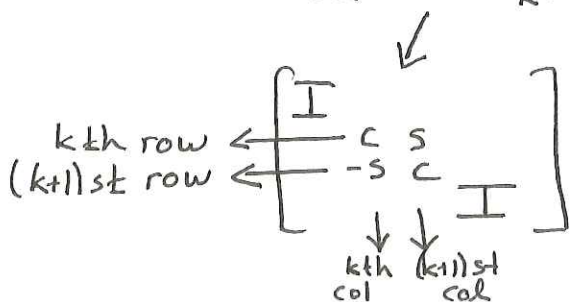 I
kth row ← c s
(k+1)st row ← -s c
I
kth (k+1)st
col col